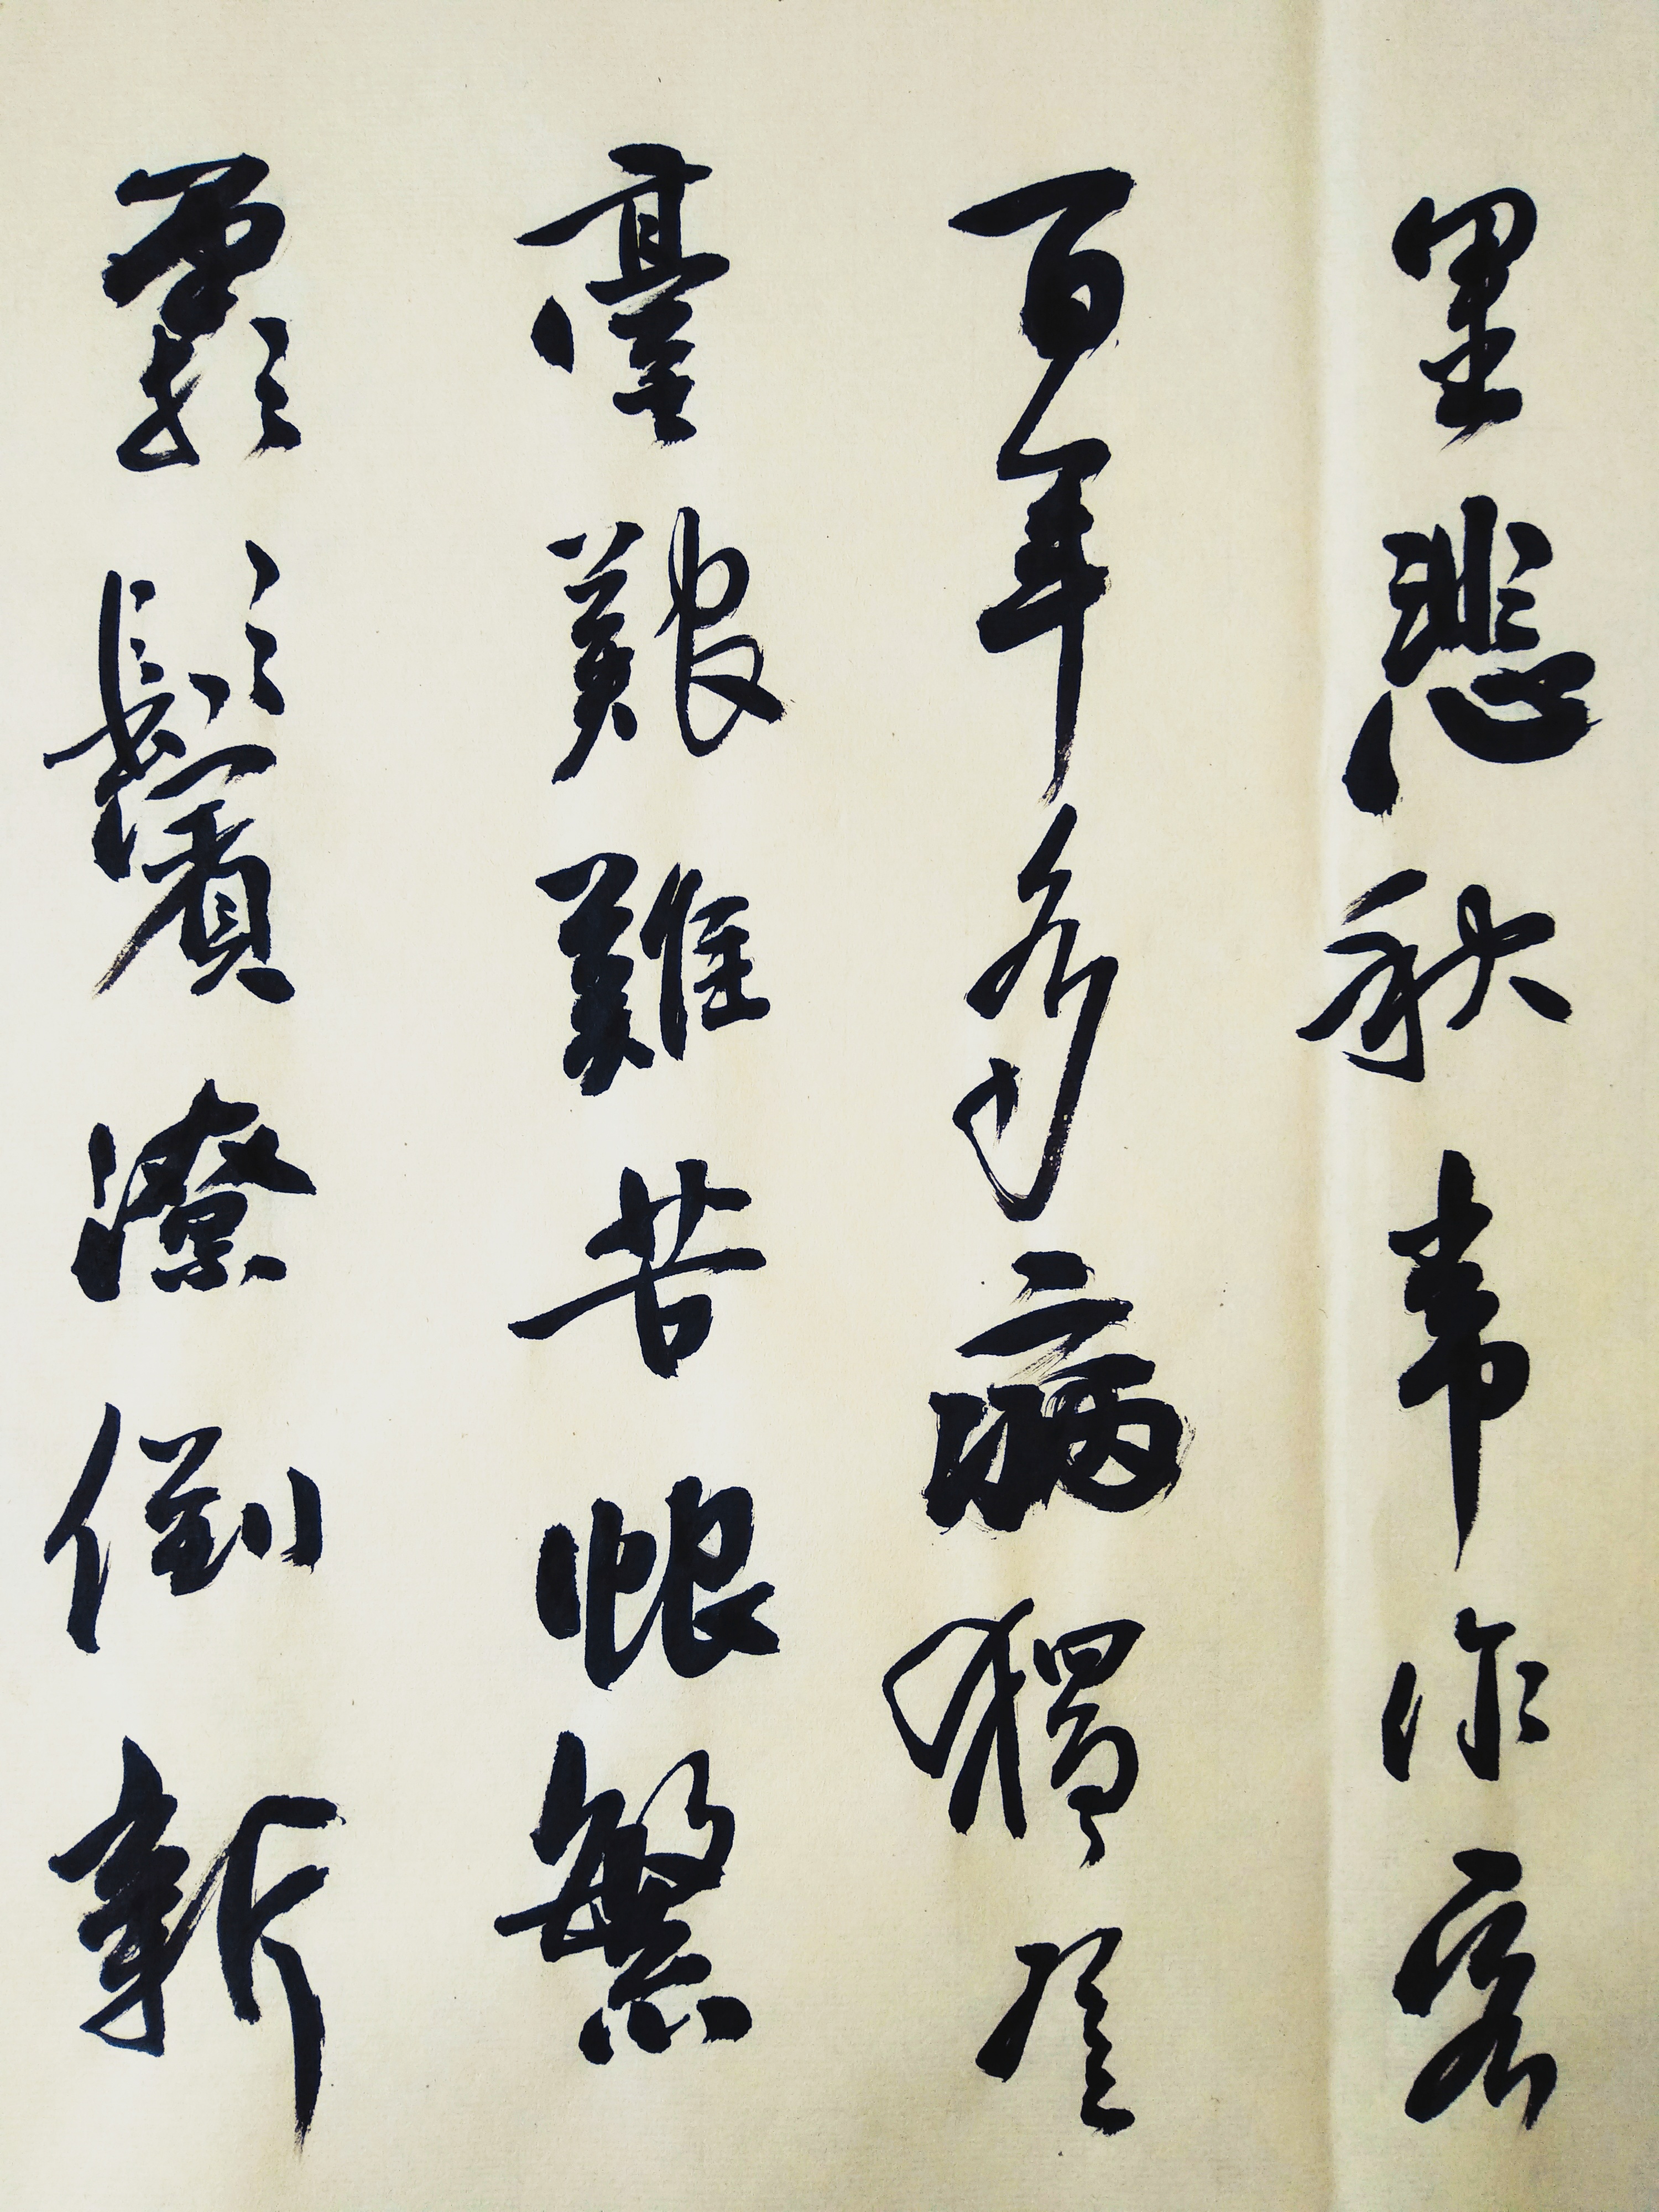 里悲秋常作客
百年多病獨登
臺艱難苦恨繁
霜鬢潦倒新